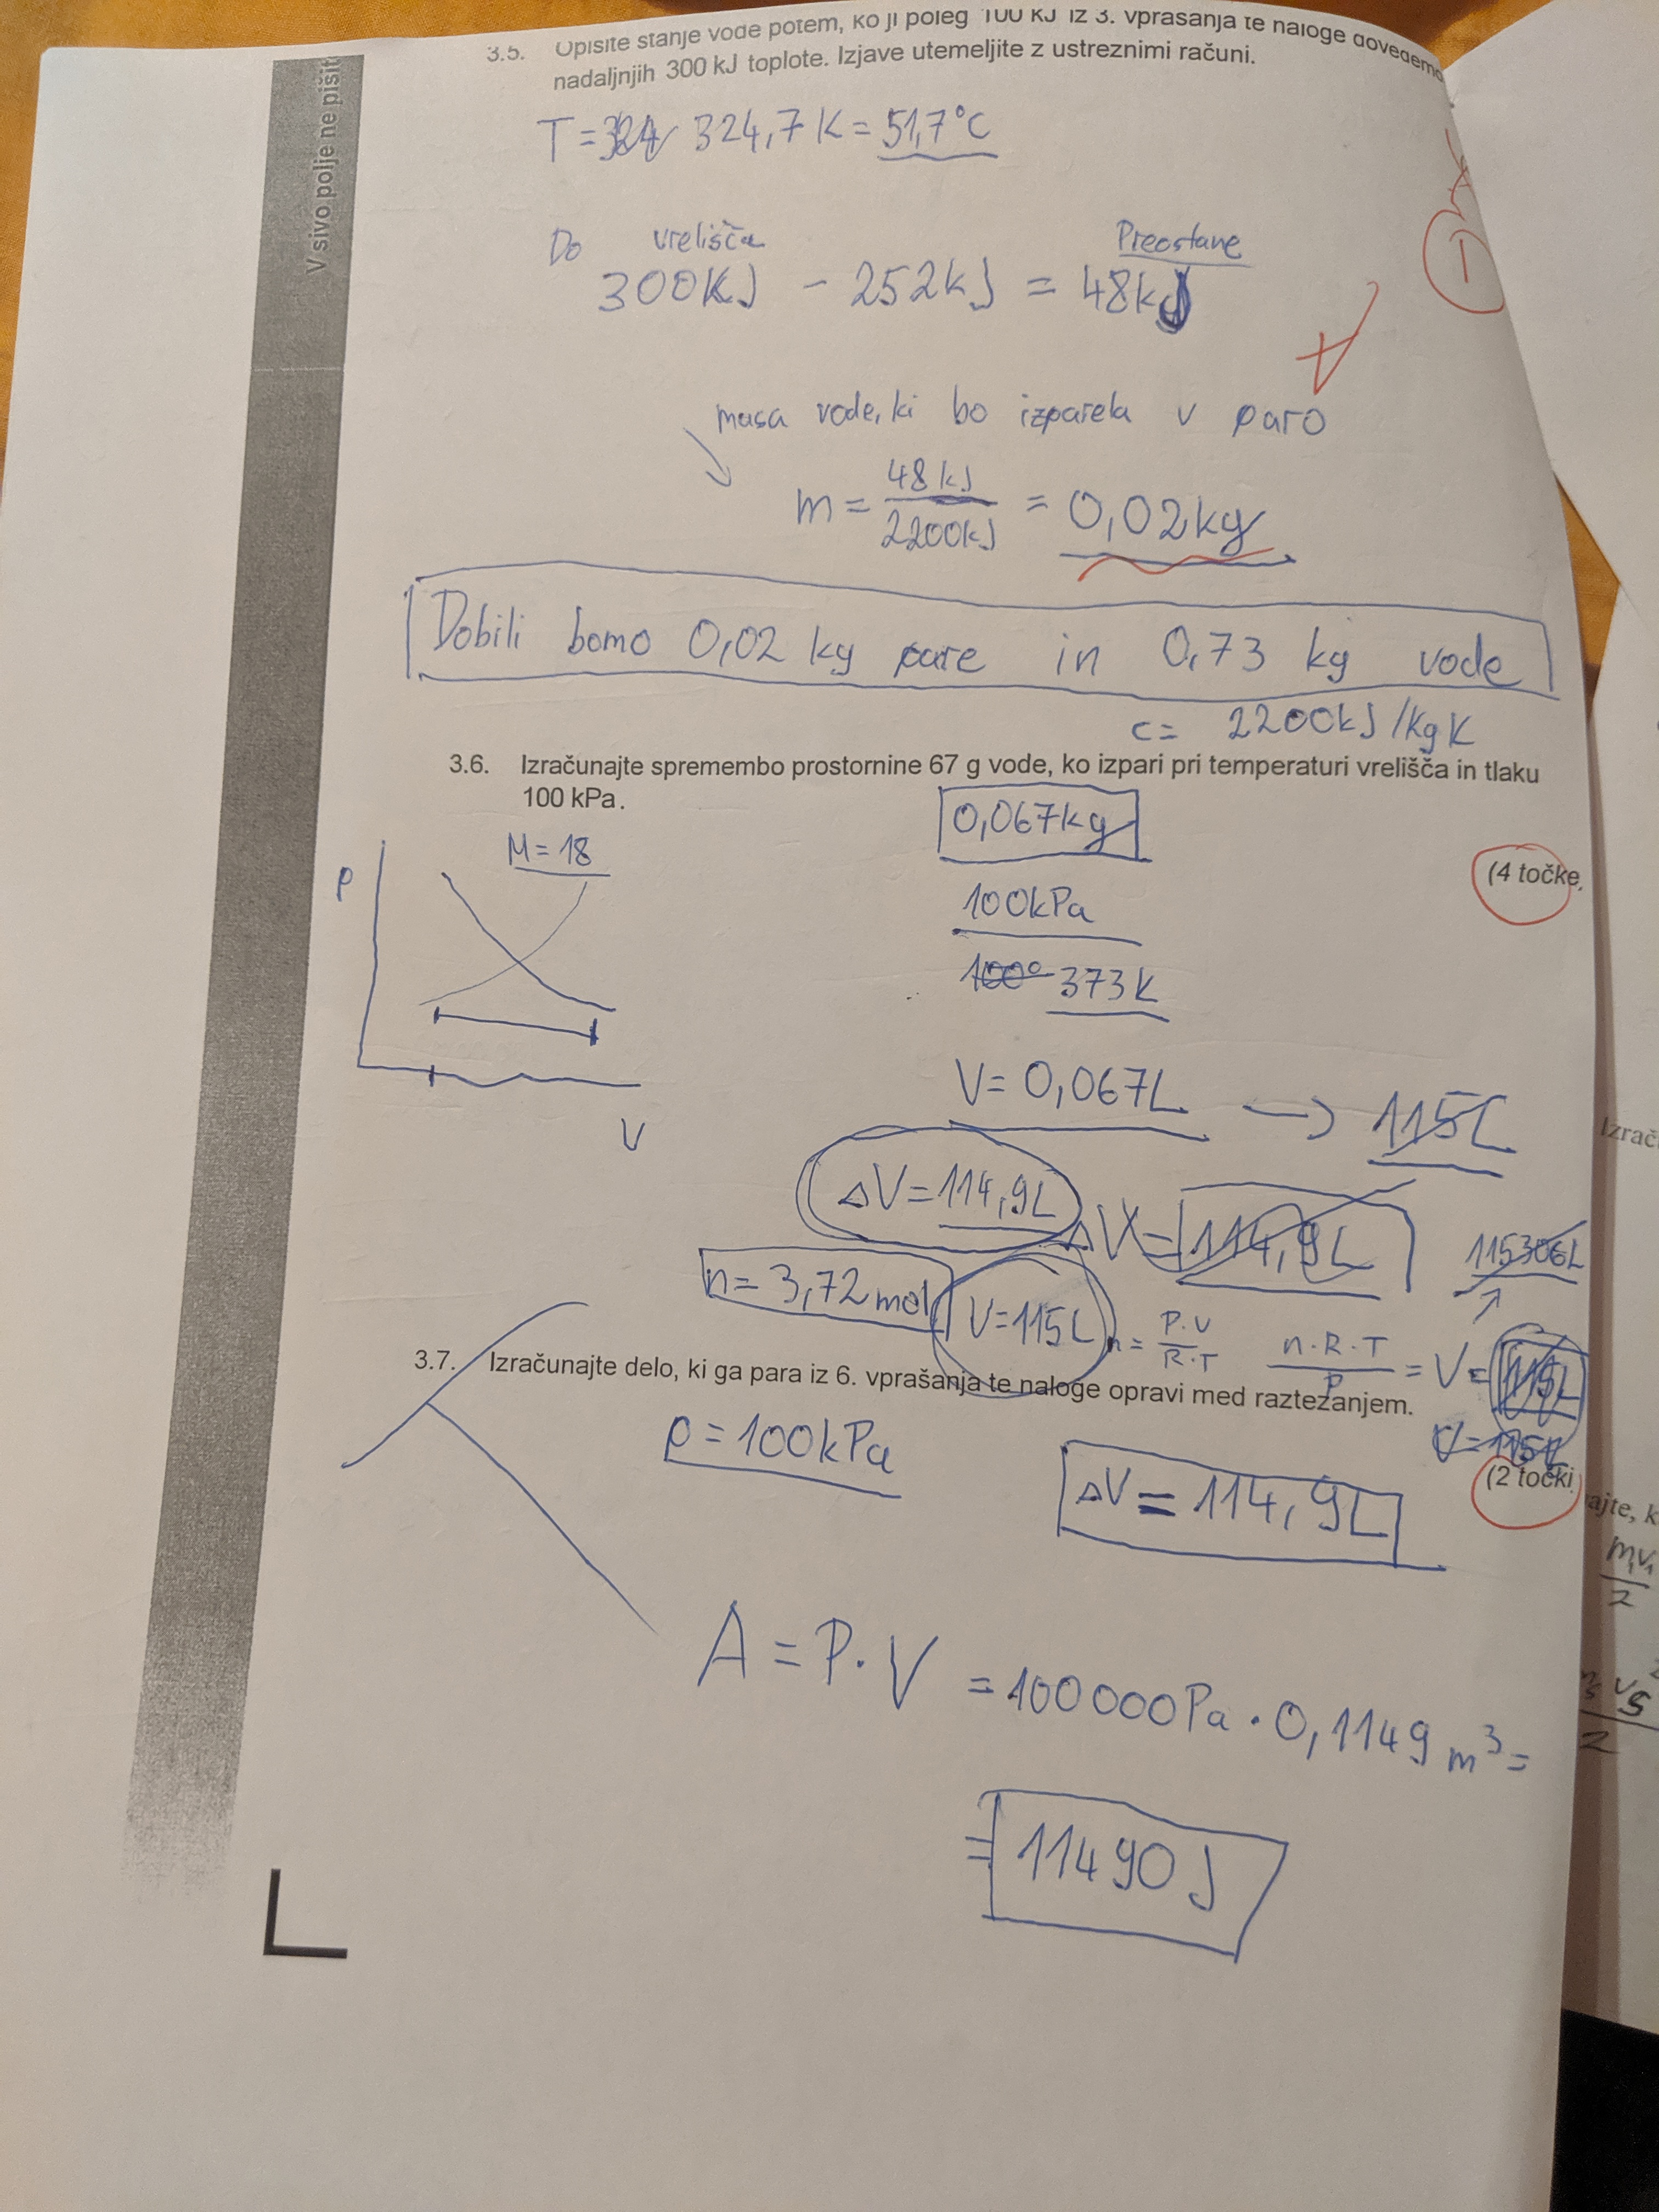 3.5. Opišite stanje vode potem, ko ji poleg 100 kJ iz 3. vprašanja te naloge dovedemo
nadaljnjih 300 kJ toplote. Izjave utemeljite z ustreznimi računi.
V sivo polje ne pišit
T = 324,7 K = 51,7°C
Do vrelišča
Preostane
300KJ - 252kJ = 48kJ
masa vode, ki bo izparela v paro
m = 48kJ / 2200kJ = 0,02kg
Dobili bomo 0,02 kg pare in 0,73 kg vode
c = 2200kJ/kgK
3.6. Izračunajte spremembo prostornine 67 g vode, ko izpari pri temperaturi vrelišča in tlaku
100 kPa.
0,067kg
M = 18
(4 točke
P
100kPa
100° 373K
V = 0,067L → 115L
V
ΔV = 114,9L
ΔV = 114,9L
115306L
n = 3,72mol
V = 115L
n = P·V / R·T
n·R·T / P = V = 115L
3.7. Izračunajte delo, ki ga para iz 6. vprašanja te naloge opravi med raztezanjem.
V = 115L
p = 100kPa
(2 točki
ΔV = 114,9L
A = P·V = 100000Pa · 0,1149 m³ =
= 11490J
Izrač
ajte, k
m₁v₁
2
2